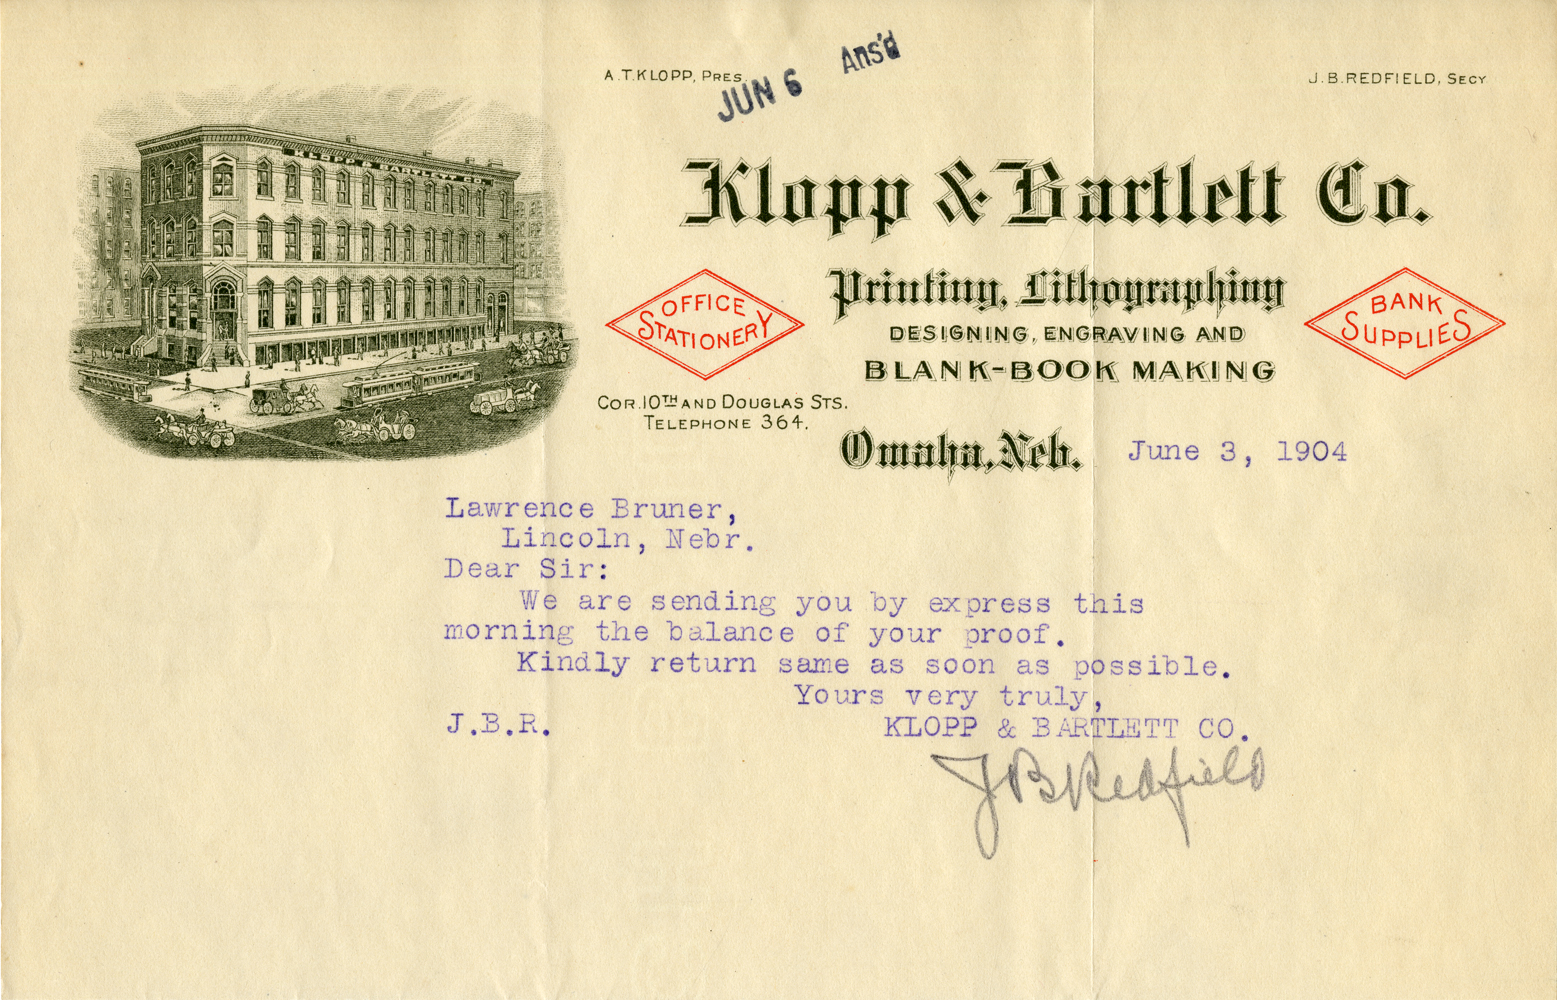 A.T.KLOPP, PRES.
JUN 6 Ans'd
J.B.REDFIELD, SECY
KLOPP & BARTLETT CO.
Klopp & Bartlett Co.
OFFICE
STATIONERY
Printing, Lithographing
DESIGNING, ENGRAVING AND
BLANK-BOOK MAKING
BANK
SUPPLIES
COR. 10TH AND DOUGLAS STS.
TELEPHONE 364.
Omaha, Neb. June 3, 1904
Lawrence Bruner,
Lincoln, Nebr.
Dear Sir:
We are sending you by express this
morning the balance of your proof.
Kindly return same as soon as possible.
Yours very truly,
J.B.R. KLOPP & BARTLETT CO.
J B Redfield